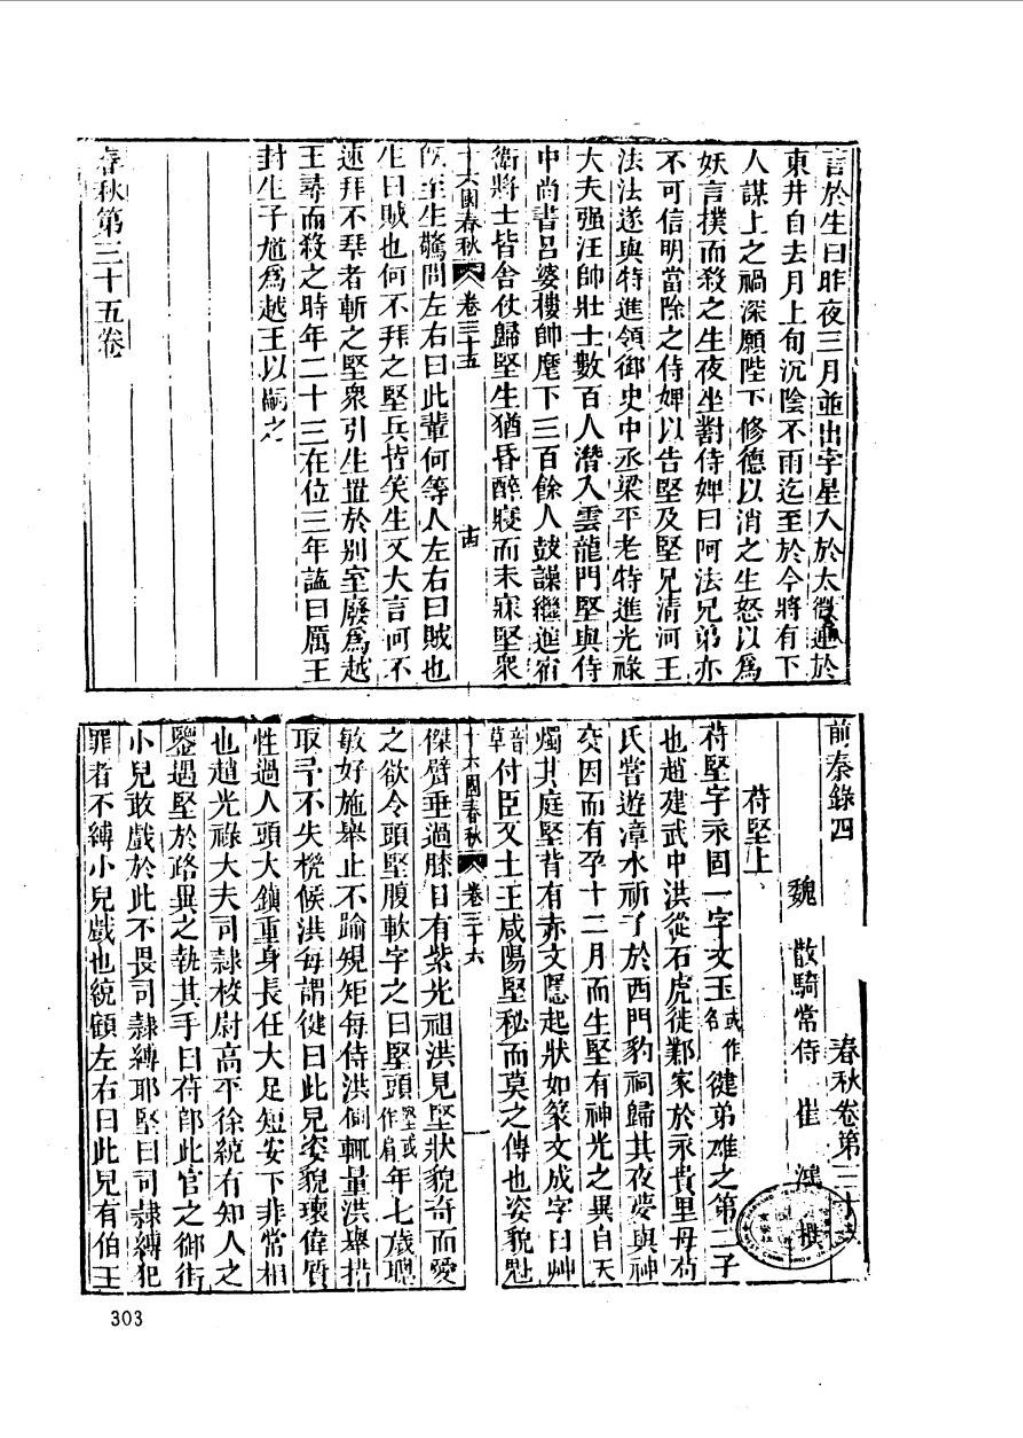 言於生曰昨夜三月並出孛星入於太微連於
東井自去月上旬沉陰不雨迄至於今將有下
人謀上之禍深願陛下修德以消之生怒以為
妖言撲而殺之生夜坐對侍婢曰阿法兄弟亦
不可信明當除之侍婢以告堅及堅兄清河王
法法遂與特進領御史中丞梁平老特進光祿
大夫强汪帥壯士數百人潛入雲龍門堅與侍
中尚書呂婆樓帥麾下三百餘人鼓譟繼進宿
衛將士皆舍仗歸堅生猶昏醉寢而未寐堅衆
十六國春秋 卷三十五 十四
既至生驚問左右曰此輩何等人左右曰賊也
生曰賊也何不拜之堅兵皆笑生又大言何不
速拜不拜者斬之堅衆引生置於別室廢為越
王尋而殺之時年二十三在位三年諡曰厲王
封生子馗爲越王以嗣之
春秋第三十五卷
前秦錄四 春秋卷第三十六
魏 散騎常侍 崔 鴻 撰
苻堅上
苻堅字永固一字文玉或作名健弟雄之第二子
也趙建武中洪從石虎徙鄴家於永貴里母苟
氏嘗遊漳水祈子於西門豹祠歸其夜夢與神
交因而有孕十二月而生堅有神光之異自天
燭其庭堅背有赤文隱起狀如篆文成字曰艸
付臣又土王咸陽堅秘而莫之傳也姿貌魁
十六國春秋 卷三十六 一
傑臂垂過膝目有紫光祖洪見堅狀貌奇而愛
之欲令頭堅腹軟字之曰堅頭堅或作肩年七歲聰
敏好施舉止不踰規矩每侍洪側輒量洪舉措
取予不失機候洪每謂健曰此兒姿貌瓌偉質
性過人頭大鎮重身長任大足短安下非常相
也趙光祿大夫司隷校尉高平徐統有知人之
鑒遇堅於路異之執其手曰苻郎此官之御街
小兒敢戲於此不畏司隷縛耶堅曰司隷縛犯
罪者不縛小兒戲也統顧左右曰此兒有伯王
303